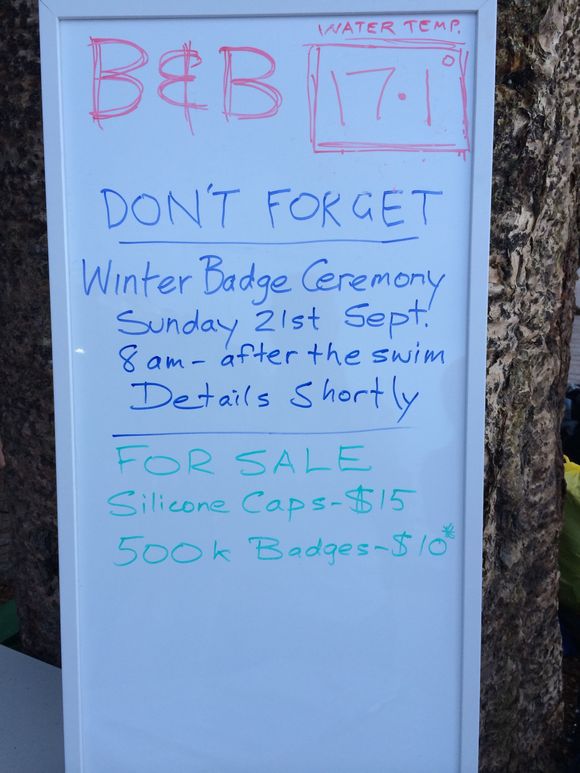 B&B
WATER TEMP.
17.1°
DON'T FORGET
Winter Badge Ceremony
Sunday 21st Sept.
8am - after the swim
Details Shortly
FOR SALE
Silicone Caps - $15
500k Badges - $10*